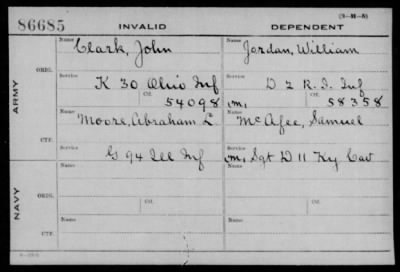 (3-M-5)
86685 INVALID DEPENDENT
Name Name
Clark, John Jordan, William
ORIG.
Service Service
K 30 Ohio Inf D 2 R.I. Inf
Ctf. 54098 (m) Ctf. 58358
ARMY
Name Name
Moore, Abraham L McAfee, Samuel
CTF.
G 94 Ill Inf (m) Sgt D 11 Ky Cav
Name Name
ORIG.
Service Ctf. Service Ctf.
NAVY
Name Name
CTF.